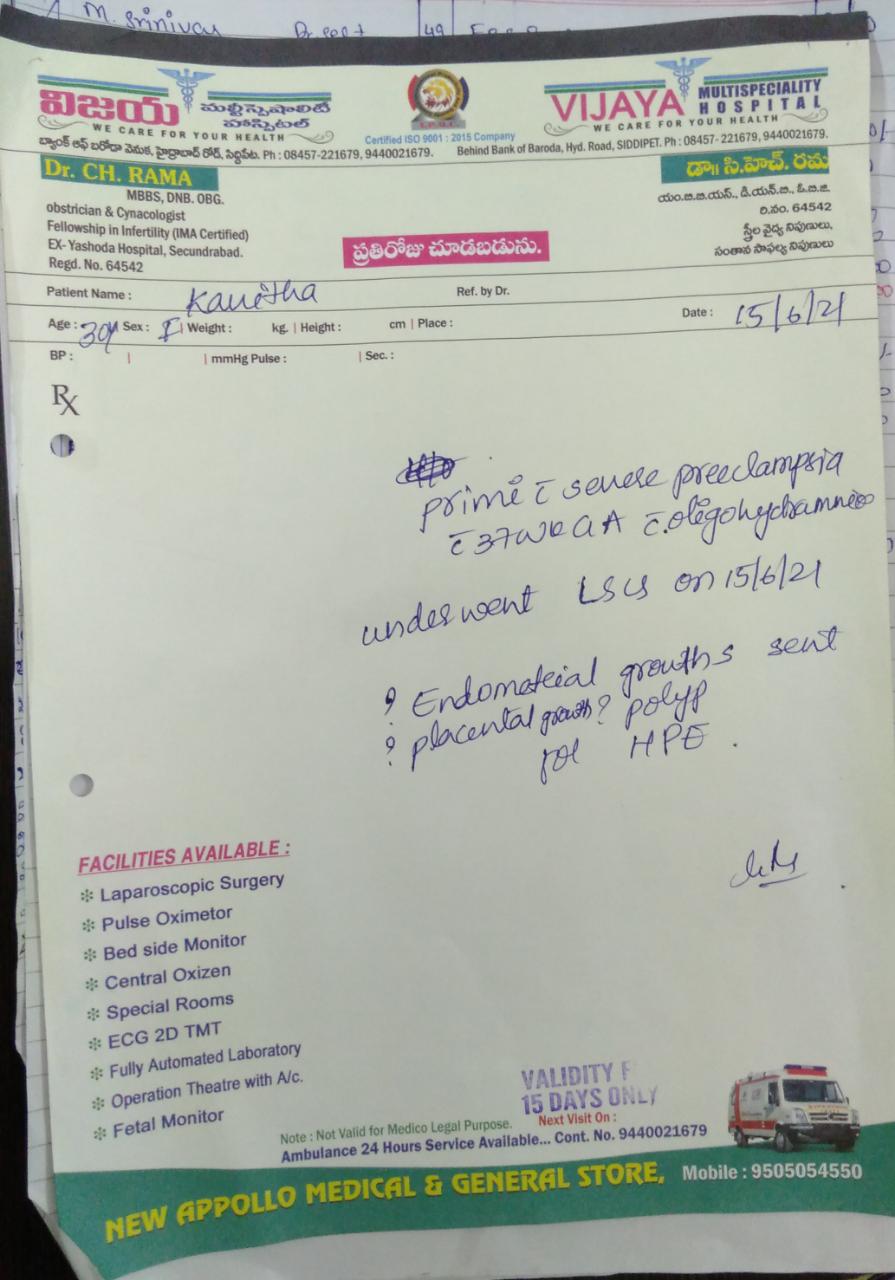 M. Srinivas
49
విజయ మల్టీస్పెషాలిటీ హాస్పిటల్
WE CARE FOR YOUR HEALTH
బ్యాంక్ ఆఫ్ బరోడా వెనుక, హైద్రాబాద్ రోడ్, సిద్దిపేట. Ph : 08457-221679, 9440021679.
Certified ISO 9001 : 2015 Company
VIJAYA MULTISPECIALITY HOSPITAL
WE CARE FOR YOUR HEALTH
Behind Bank of Baroda, Hyd. Road, SIDDIPET. Ph : 08457- 221679, 9440021679.
Dr. CH. RAMA
MBBS, DNB. OBG.
obstrician & Cynacologist
Fellowship in Infertility (IMA Certified)
EX- Yashoda Hospital, Secundrabad.
Regd. No. 64542
ప్రతిరోజు చూడబడును.
డా॥ సి.హెచ్. రమ
యం.బి.బి.యస్., డి.యన్.బి., ఓ.బి.జి
రి.నం. 64542
స్త్రీల వైద్య నిపుణులు,
సంతాన సాఫల్య నిపుణులు
Patient Name : Kavitha Ref. by Dr.
Age : 30y Sex : F | Weight : kg. | Height : cm | Place : Date : 15/6/21
BP : | | mmHg Pulse : | Sec. :
Rx
primi c̄ severe preeclampsia
c̄ 37wk GA c̄ oligohydramnios
underwent LSCS on 15/6/21
? Endometrial growths sent
? placental growth ? polyp
for HPE.
FACILITIES AVAILABLE :
Laparoscopic Surgery
Pulse Oximetor
Bed side Monitor
Central Oxizen
Special Rooms
ECG 2D TMT
Fully Automated Laboratory
Operation Theatre with A/c.
Fetal Monitor
VALIDITY F
15 DAYS ONLY
Note : Not Valid for Medico Legal Purpose. Next Visit On :
Ambulance 24 Hours Service Available... Cont. No. 9440021679
NEW APPOLLO MEDICAL & GENERAL STORE, Mobile : 9505054550